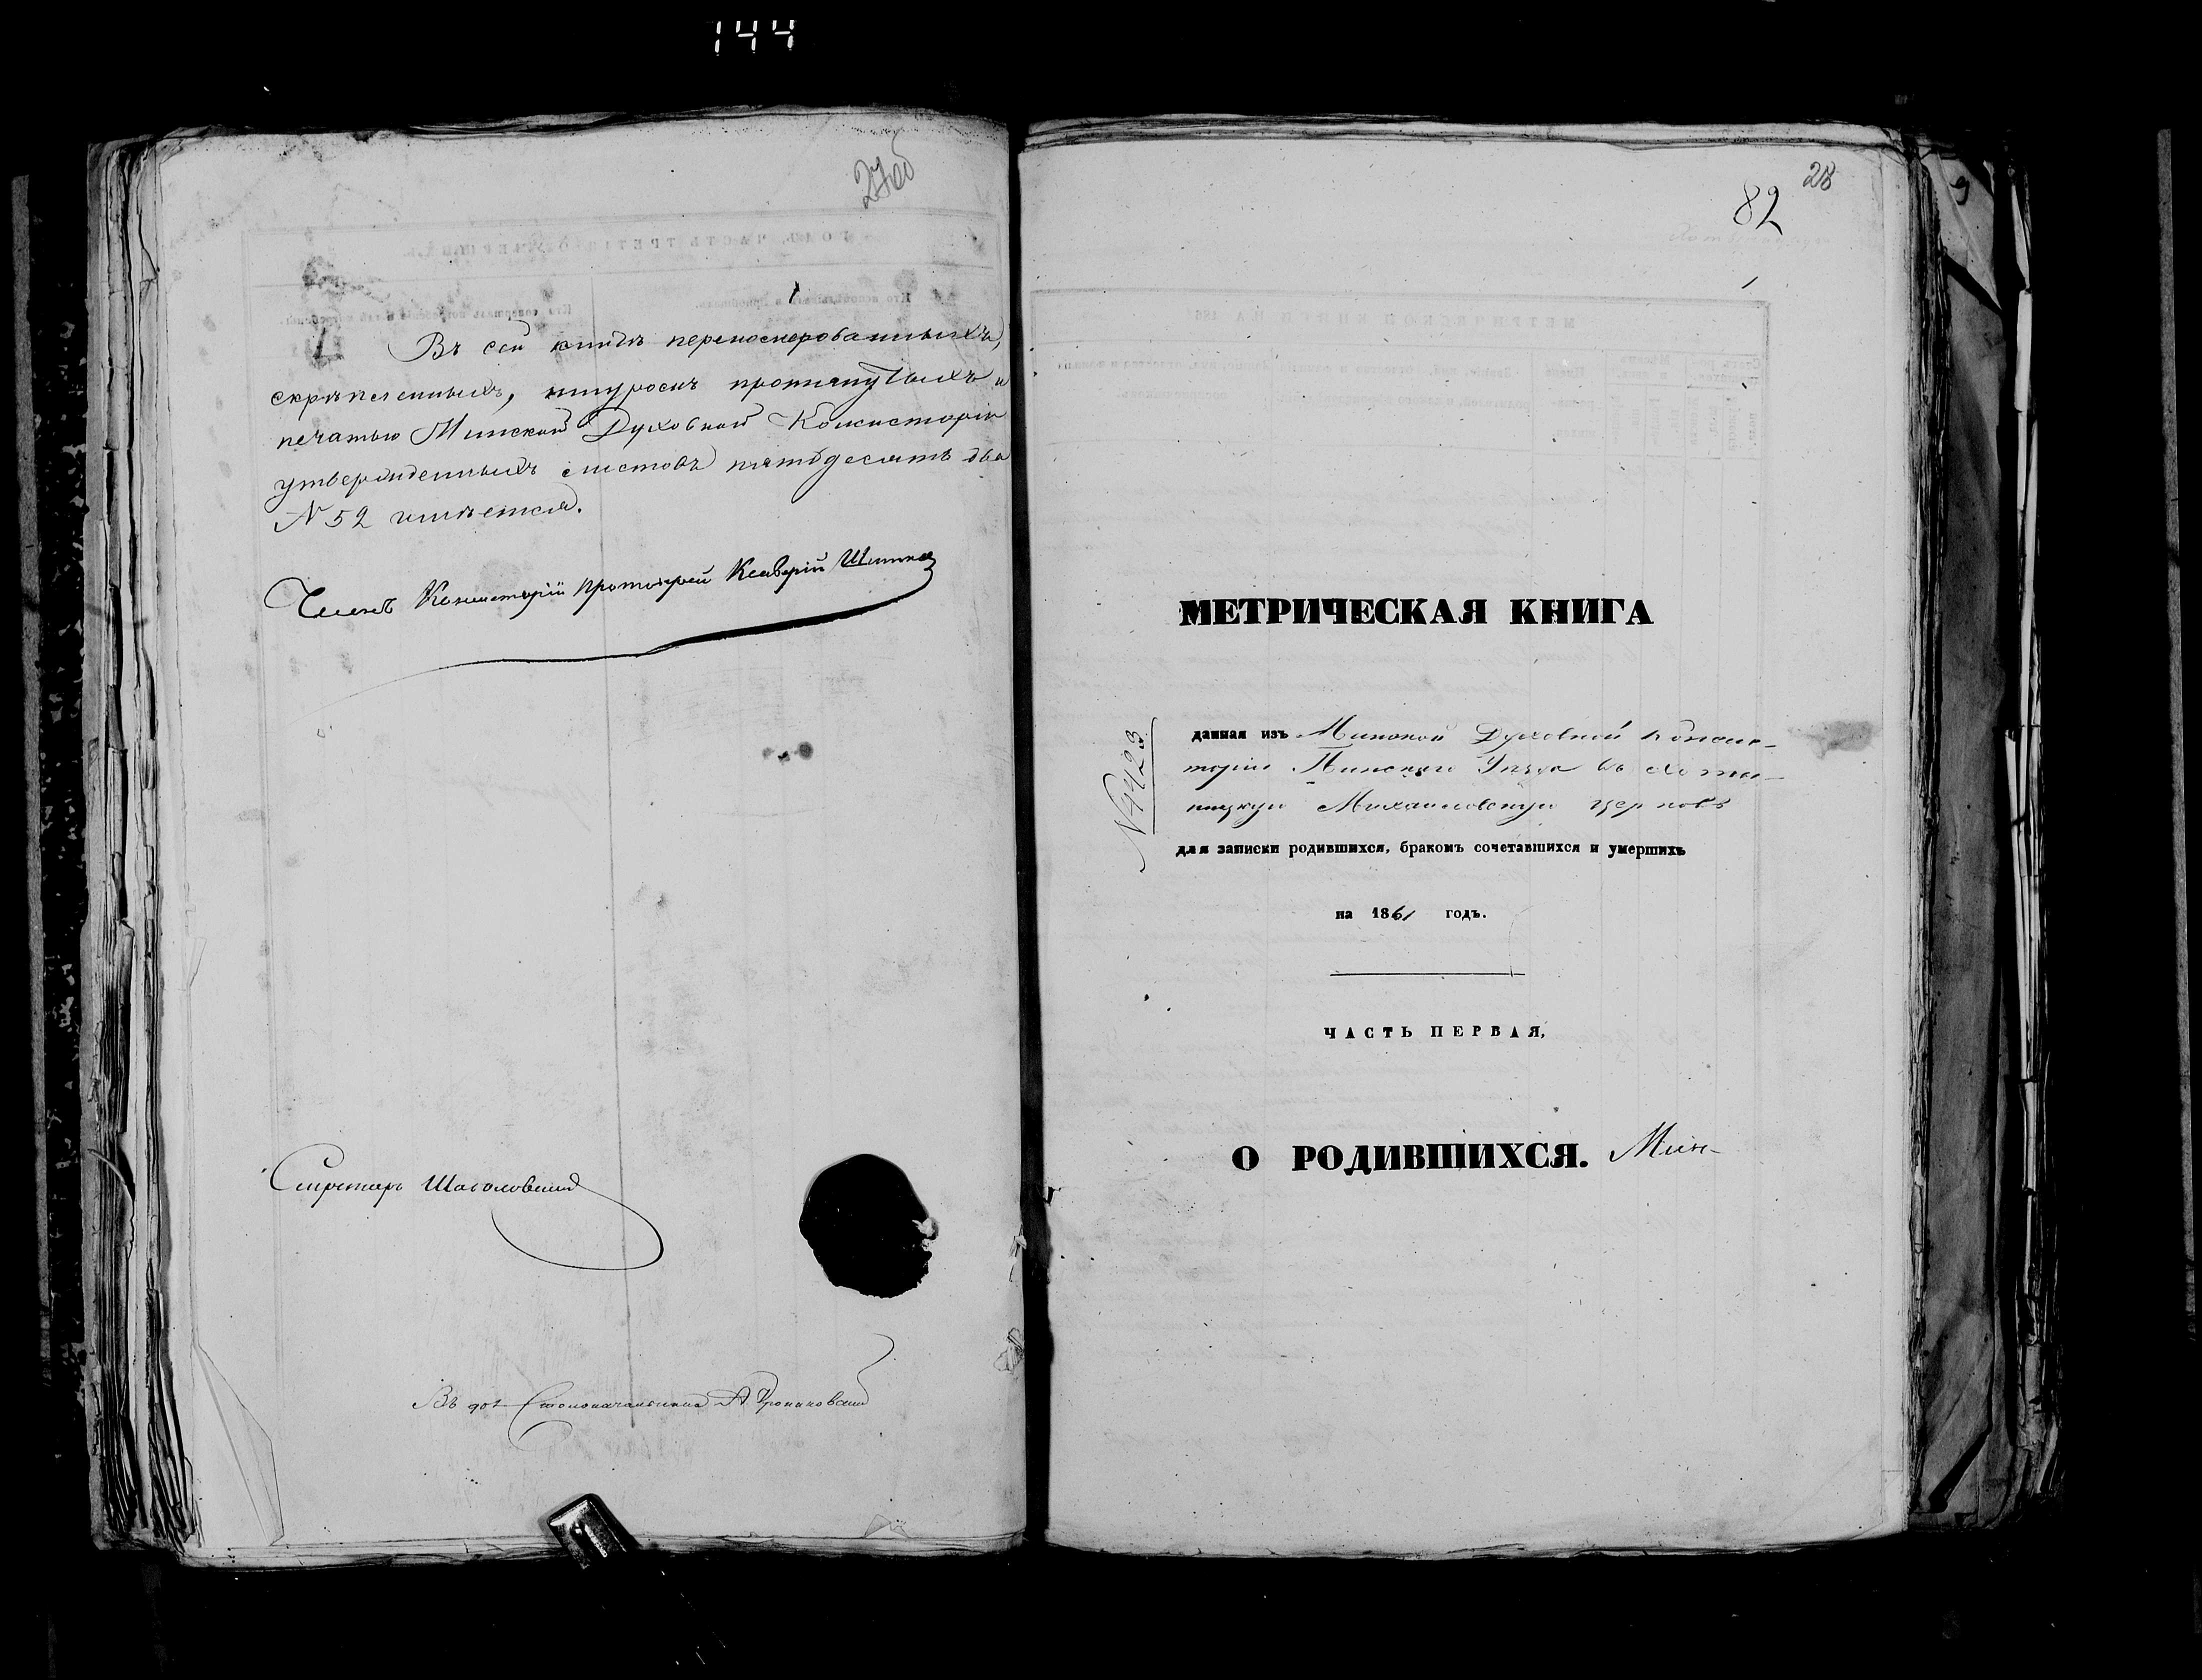 144
27об
Въ сей книгѣ перенумерованныхъ,
скрѣпленныхъ, шнуромъ протянутыхъ и
печатью Минской Духовной Консисторіи
утвержденныхъ листовъ пятьдесятъ два
№ 52 имѣется.
Членъ Консисторіи Протоіерей Ксаверій
Секретарь
Въ дол. Столоначальника А
28
82
МЕТРИЧЕСКАЯ КНИГА
№4423
данная изъ Минской Духовной Консис-
торіи Пинского Уѣзда въ Хоты-
ницкую Михайловскую церковь
для записки родившихся, бракомъ сочетавшихся и умершихъ
на 1861 годъ.
ЧАСТЬ ПЕРВАЯ,
О РОДИВШИХСЯ. Мин-